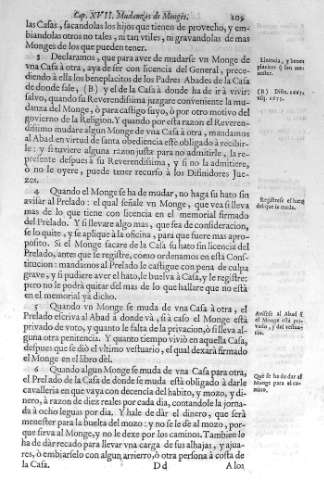 Cap. XVII. Mudanças de Monges. 209
las Casas, sacandolas los hijos que tienen de provecho, y em-
biandolas otros no tales, ni tan vtiles, ni gravandolas de mas
Monges de los que pueden tener.
3 Declaramos, que para aver de mudarse vn Monge de
vna Casa à otra, aya de ser con licencia del General, prece-
diendo à ella los beneplacitos de los Padres Abades de la Casa
de donde sale, (B) y el de la Casa à donde ha de ir à vivir:
salvo, quando su Reverendissima juzgare conveniente la mu-
dança del Monge, ò para castigo suyo, ò por otro motivo del
govierno de la Religion. Y quando por esta razon el Reveren-
dissimo mudare algun Monge de vna Casa à otra, mandamos
al Abad en virtud de santa obediencia estè obligado à recibir-
le: y si tuviere alguna razon justa para no admitirle, la re-
presente despues à su Reverendissima, y si no la admitiere,
ò no le oyere, puede tener recurso à los Difinidores Jue-
zes.
Licencia, y bene-
placitos
(B) Difin. 1665.
4 Quando el Monge se ha de mudar, no haga su hato sin
avisar al Prelado: el qual señale vn Monge, que vea si lleva
mas de lo que tiene con licencia en el memorial firmado
del Prelado. Y si llevare algo mas, que sea de consideracion,
se lo quite, y se aplique à la oficina, para que fuere mas apro-
posito. Si el Monge sacare de la Casa su hato sin licencia del
Prelado, antes que le registre, como ordenamos en esta Cons-
titucion: mandamos al Prelado le castigue con pena de culpa
grave, y si pudiere aver el hato, le buelva à la Casa, y le registre:
pero no le podrà quitar del mas de lo que hallare que no està
en el memorial yà dicho.
Registrese el hato
del que se muda.
5 Quando vn Monge se muda de vna Casa à otra, el
Prelado escriva al Abad à donde và, si à caso el Monge està
privado de voto, y quanto le falta de la privacion, ò si lleva al-
guna otra penitencia. Y quanto tiempo viviò en aquella Casa,
despues que se diò el vltimo vestuario, el qual dexarà firmado
el Monge en el libro del.
Avisese al Abad si
el Monge està pri-
vado, y del vestua-
rio.
6 Quando algun Monge se muda de vna Casa para otra,
el Prelado de la Casa de donde se muda està obligado à darle
cavalleria en que vaya con decencia del habito, y mozo, y di-
nero, à razon de diez reales por cada dia, contandole la jorna-
da à ocho leguas por dia. Y hale de dàr el dinero, que serà
menester para la buelta del mozo: y no se le dè al mozo, por-
que sirva al Monge, y no le dexe por los caminos. Tambien lo
ha de dàr recado para llevar vna carga de sus alhajas, y ajua-
res, ò embiarselo con algun arriero, ò otra persona à costa de
la Casa.
Què se ha de dàr al
Monge para el ca-
mino.
Dd A los